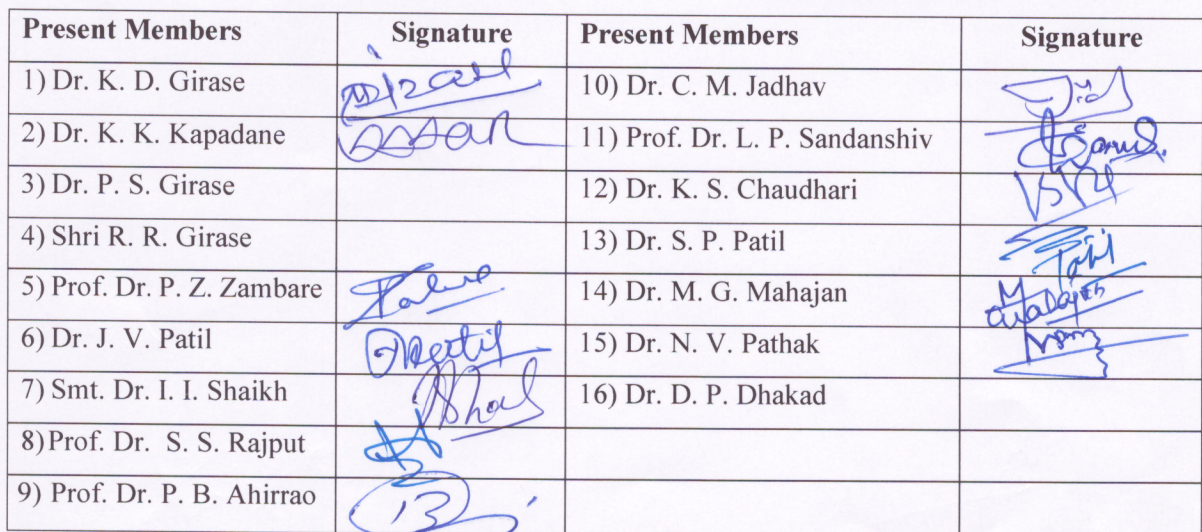 Present Members Signature Present Members Signature
1) Dr. K. D. Girase 10) Dr. C. M. Jadhav
2) Dr. K. K. Kapadane 11) Prof. Dr. L. P. Sandanshiv
3) Dr. P. S. Girase 12) Dr. K. S. Chaudhari
4) Shri R. R. Girase 13) Dr. S. P. Patil
5) Prof. Dr. P. Z. Zambare 14) Dr. M. G. Mahajan
6) Dr. J. V. Patil 15) Dr. N. V. Pathak
7) Smt. Dr. I. I. Shaikh 16) Dr. D. P. Dhakad
8) Prof. Dr. S. S. Rajput
9) Prof. Dr. P. B. Ahirrao